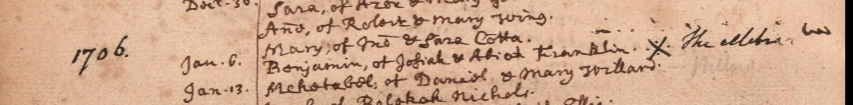 Dec. 30. Sara, of
Ann, of Robert & Mary Wing.
Mary, of Jno & Sara Cotta.
1706. Jan. 6. Benjamin, of Josiah & Abiah Franklin. X The celebra
Jan. 13. Mehetabel, of Daniel & Mary Willard.
Rebekah Nichols.